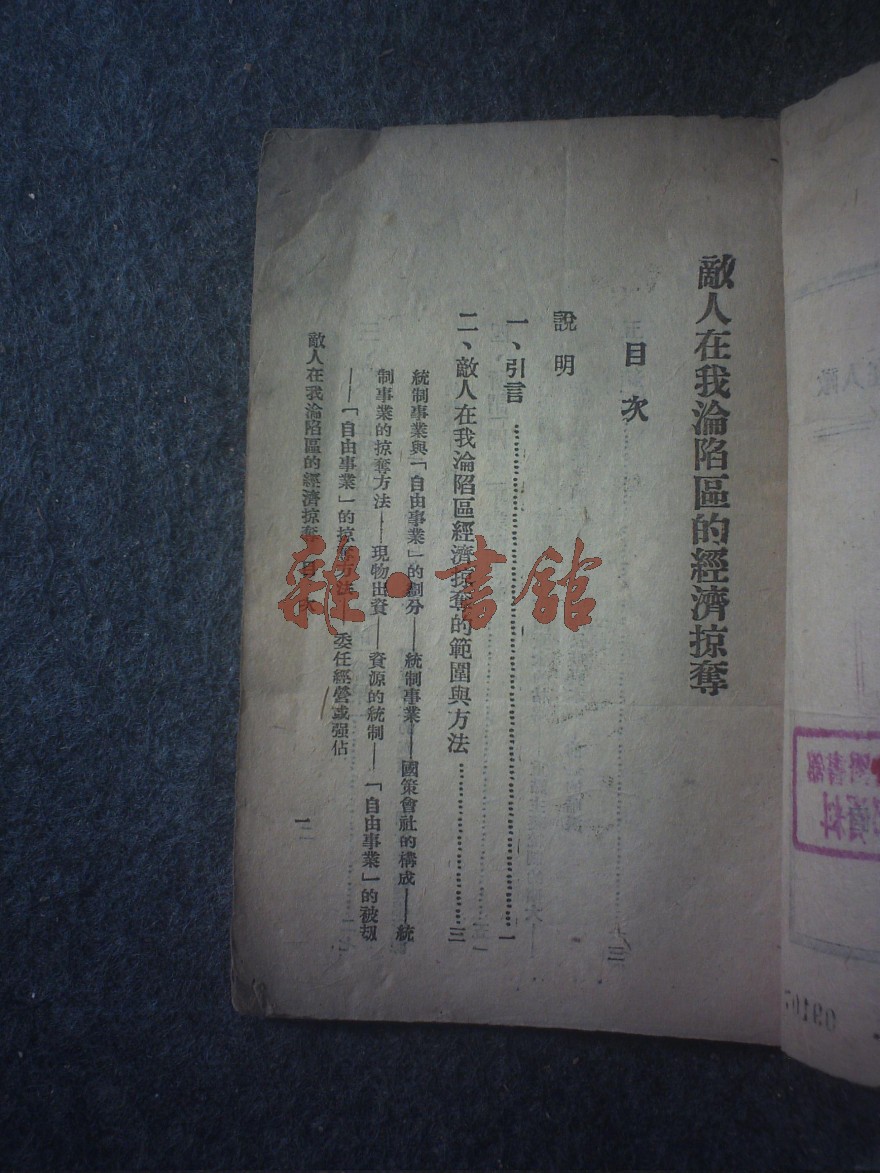 敵人在我淪陷區的經濟掠奪
目次
說明
一、引言…………一
二、敵人在我淪陷區經濟掠奪的範圍與方法…………三
統制事業與「自由事業」的劃分——統制事業——國策會社的構成——統
制事業的掠奪方法——現物出資——資源的統制——「自由事業」的被刼
——「自由事業」的掠奪方法——委任經營或强佔
敵人在我淪陷區的經濟掠奪 目次
一
雜·書館